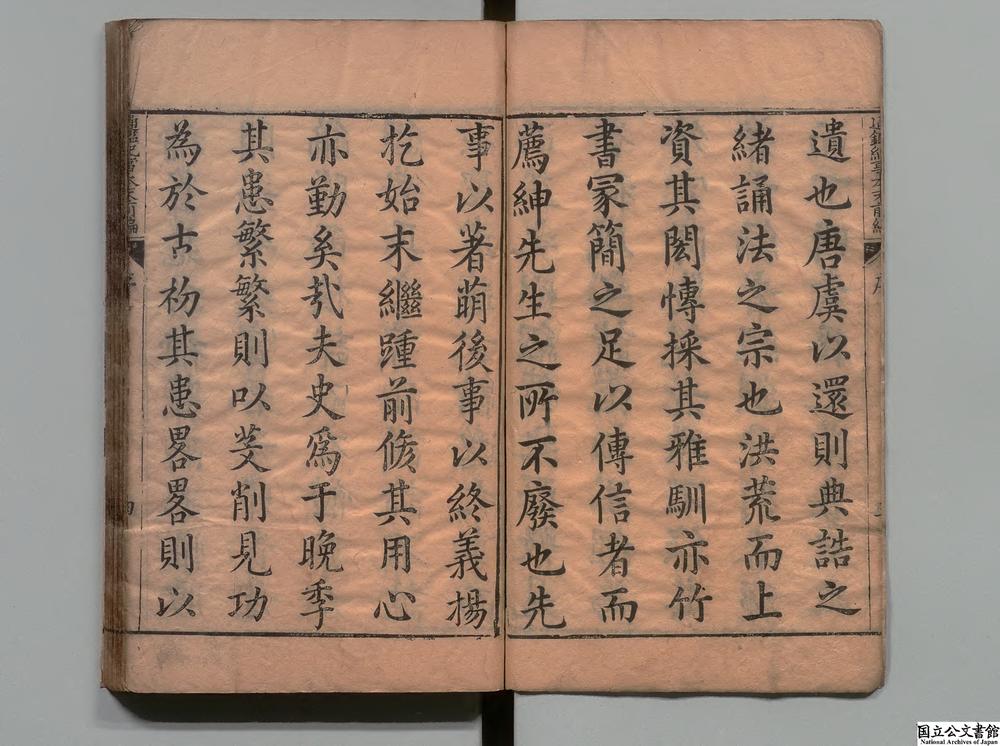 遺也唐虞以還則典誥之
緒誦法之宗也洪荒而上
資其閎愽採其雅馴亦竹
書冢簡之足以傳信者而
薦紳先生之所不廢也先
事以著萌後事以終義揚
扢始末繼踵前脩其用心
亦勤矣㢤夫史爲于晚季
其患繁繁則以芟削見功
為於古枌其患畧畧則以
国立公文書館
National Archives of Japan